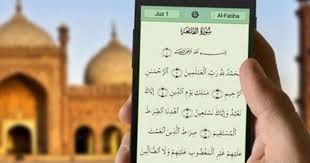 Juz 1
Al-Fatiha
سُورَةُ الفَاتِحَةِ
بِسْمِ اللَّهِ الرَّحْمَٰنِ الرَّحِيمِ
الْحَمْدُ لِلَّهِ رَبِّ الْعَالَمِينَ الرَّحْمَٰنِ
الرَّحِيمِ مَٰلِكِ يَوْمِ الدِّينِ إِيَّاكَ
نَعْبُدُ وَإِيَّاكَ نَسْتَعِينُ اهْدِنَا الصِّرَٰطَ
الْمُسْتَقِيمَ صِرَٰطَ الَّذِينَ أَنْعَمْتَ
عَلَيْهِمْ غَيْرِ الْمَغْضُوبِ عَلَيْهِمْ وَلَا الضَّالِّينَ